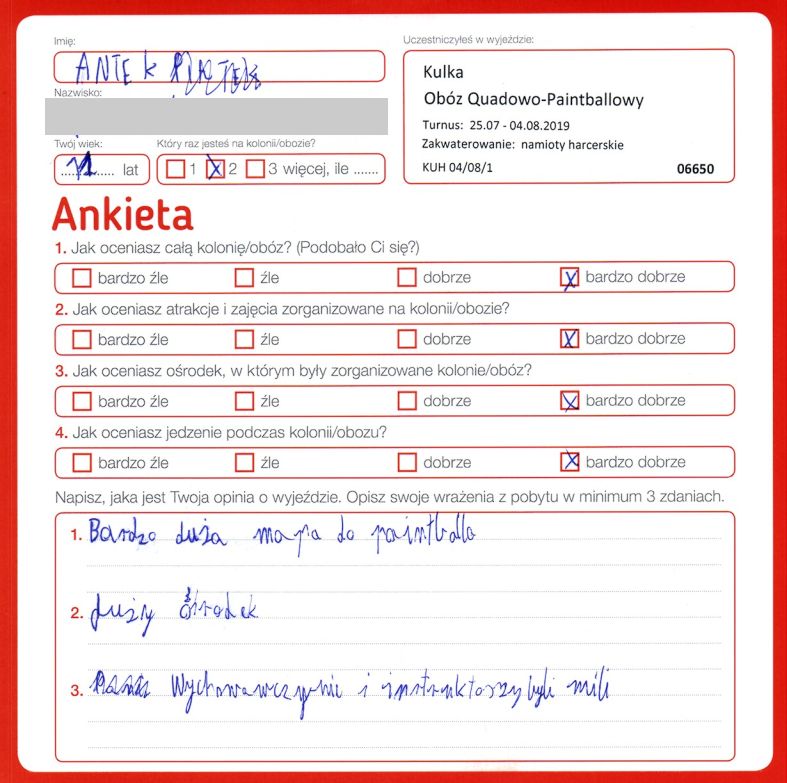 Imię:
ANTEK
Nazwisko:
Twój wiek:
11 lat
Który raz jesteś na kolonii/obozie?
1 X 2 3 więcej, ile .......
Uczestniczyłeś w wyjeździe:
Kulka
Obóz Quadowo-Paintballowy
Turnus: 25.07 - 04.08.2019
Zakwaterowanie: namioty harcerskie
KUH 04/08/1 06650
Ankieta
1. Jak oceniasz całą kolonię/obóz? (Podobało Ci się?)
bardzo źle źle dobrze X bardzo dobrze
2. Jak oceniasz atrakcje i zajęcia zorganizowane na kolonii/obozie?
bardzo źle źle dobrze X bardzo dobrze
3. Jak oceniasz ośrodek, w którym były zorganizowane kolonie/obóz?
bardzo źle źle dobrze X bardzo dobrze
4. Jak oceniasz jedzenie podczas kolonii/obozu?
bardzo źle źle dobrze X bardzo dobrze
Napisz, jaka jest Twoja opinia o wyjeździe. Opisz swoje wrażenia z pobytu w minimum 3 zdaniach.
1. Bardzo duża mapa do paintballa
2. Duży ośrodek
3. Wychowawczynie i instruktorzy byli mili